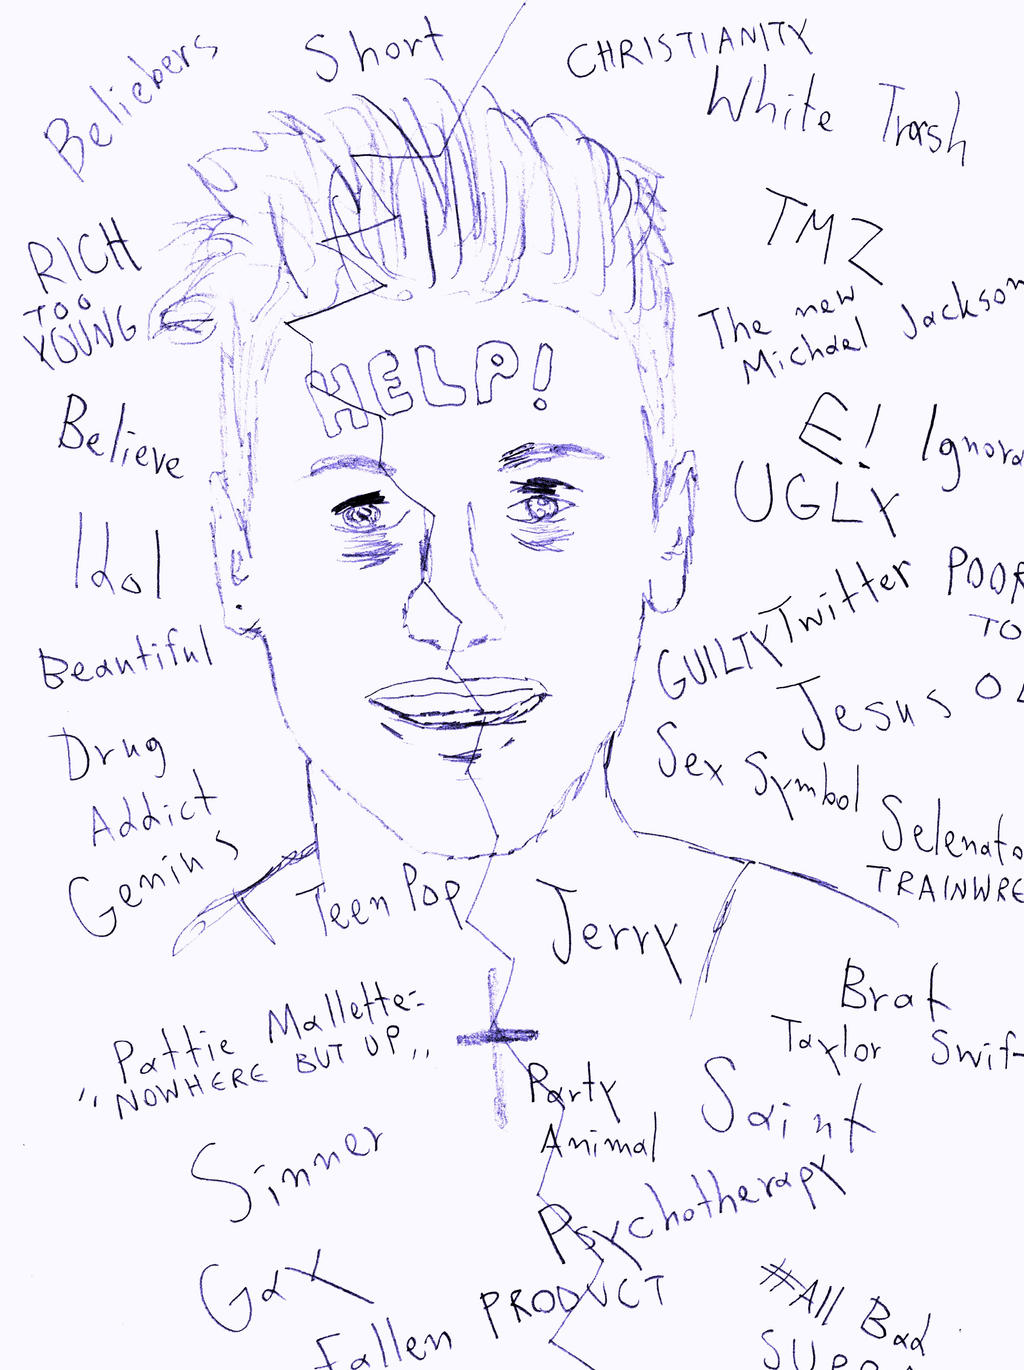 Beliebers
Short
CHRISTIANITY
White Trash
RICH
TOO
YOUNG
TMZ
The new
Michael Jackson
HELP!
Believe
E!
UGLY
Idol
Twitter
POOR
TO
GUILTY
Jesus
Beautiful
Sex Symbol
Drug
Addict
Genius
Teen Pop
Jerry
Brat
Taylor
Pattie Mallette:
"NOWHERE BUT UP"
Party
Animal
Saint
Sinner
Psychotherapy
Gay
Fallen PRODUCT
#All Bad